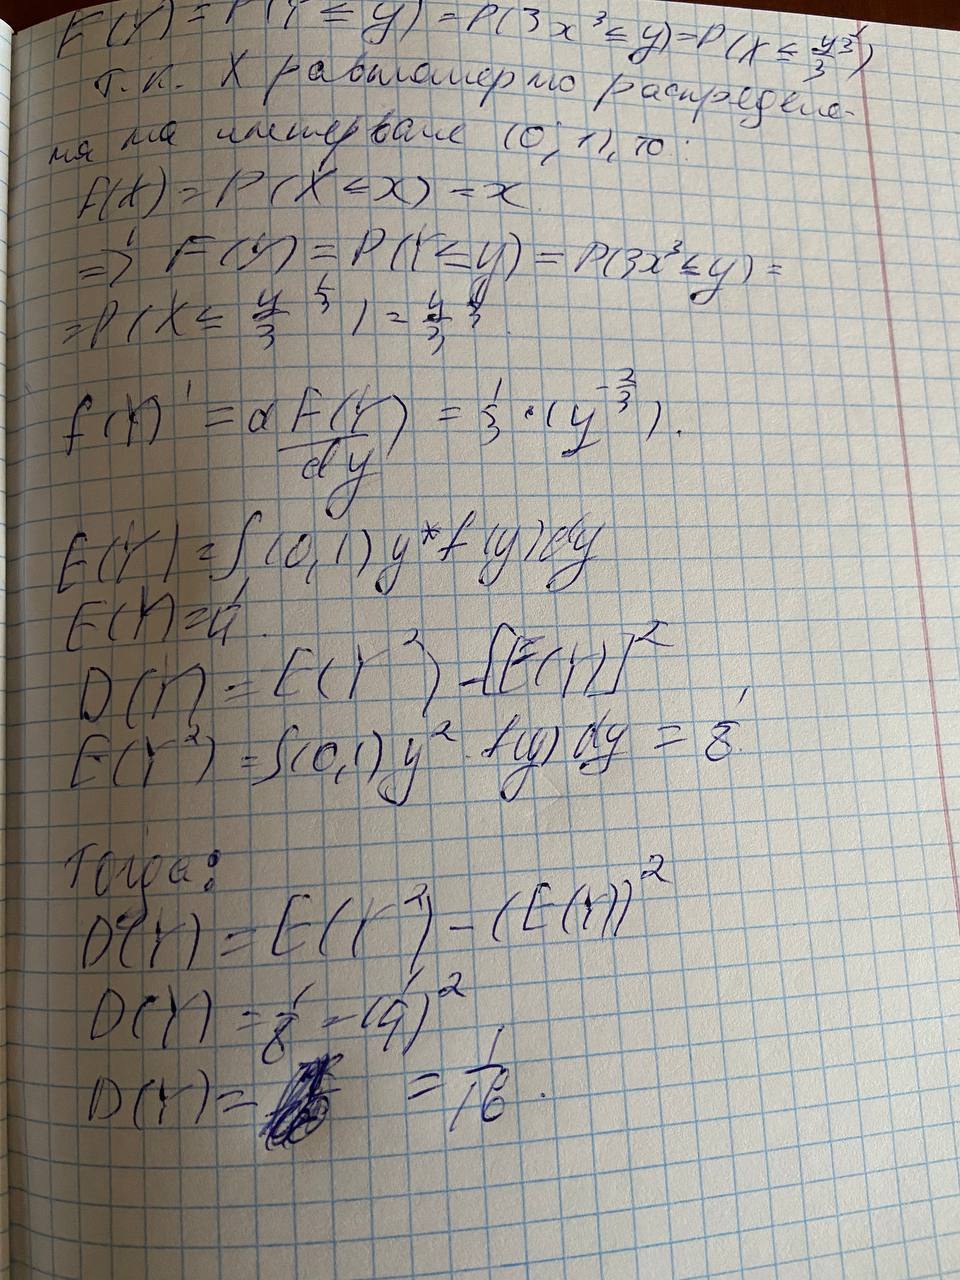 F(Y) = P(Y ≤ y) = P(3x³ ≤ y) = P(X ≤ y/3 ^1/3)
Т.к. X равномерно распределе-
на на интервале (0, 1), то:
f(x) = P(X ≤ x) = x
=> F(y) = P(Y ≤ y) = P(3x³ ≤ y) =
= P(X ≤ y/3 ^1/3) = y/3 ^1/3.
f(Y)' = d F(Y)/dy = 1/3 · (y^-2/3).
E(Y) = ∫(0,1) y*f(y)dy
E(Y) = 1/4.
D(Y) = E(Y²) - [E(Y)]²
E(Y²) = ∫(0,1) y² · f(y) dy = 1/8.
Тогда:
D(Y) = E(Y²) - (E(Y))²
D(Y) = 1/8 - (1/4)²
D(Y) = = 1/16.